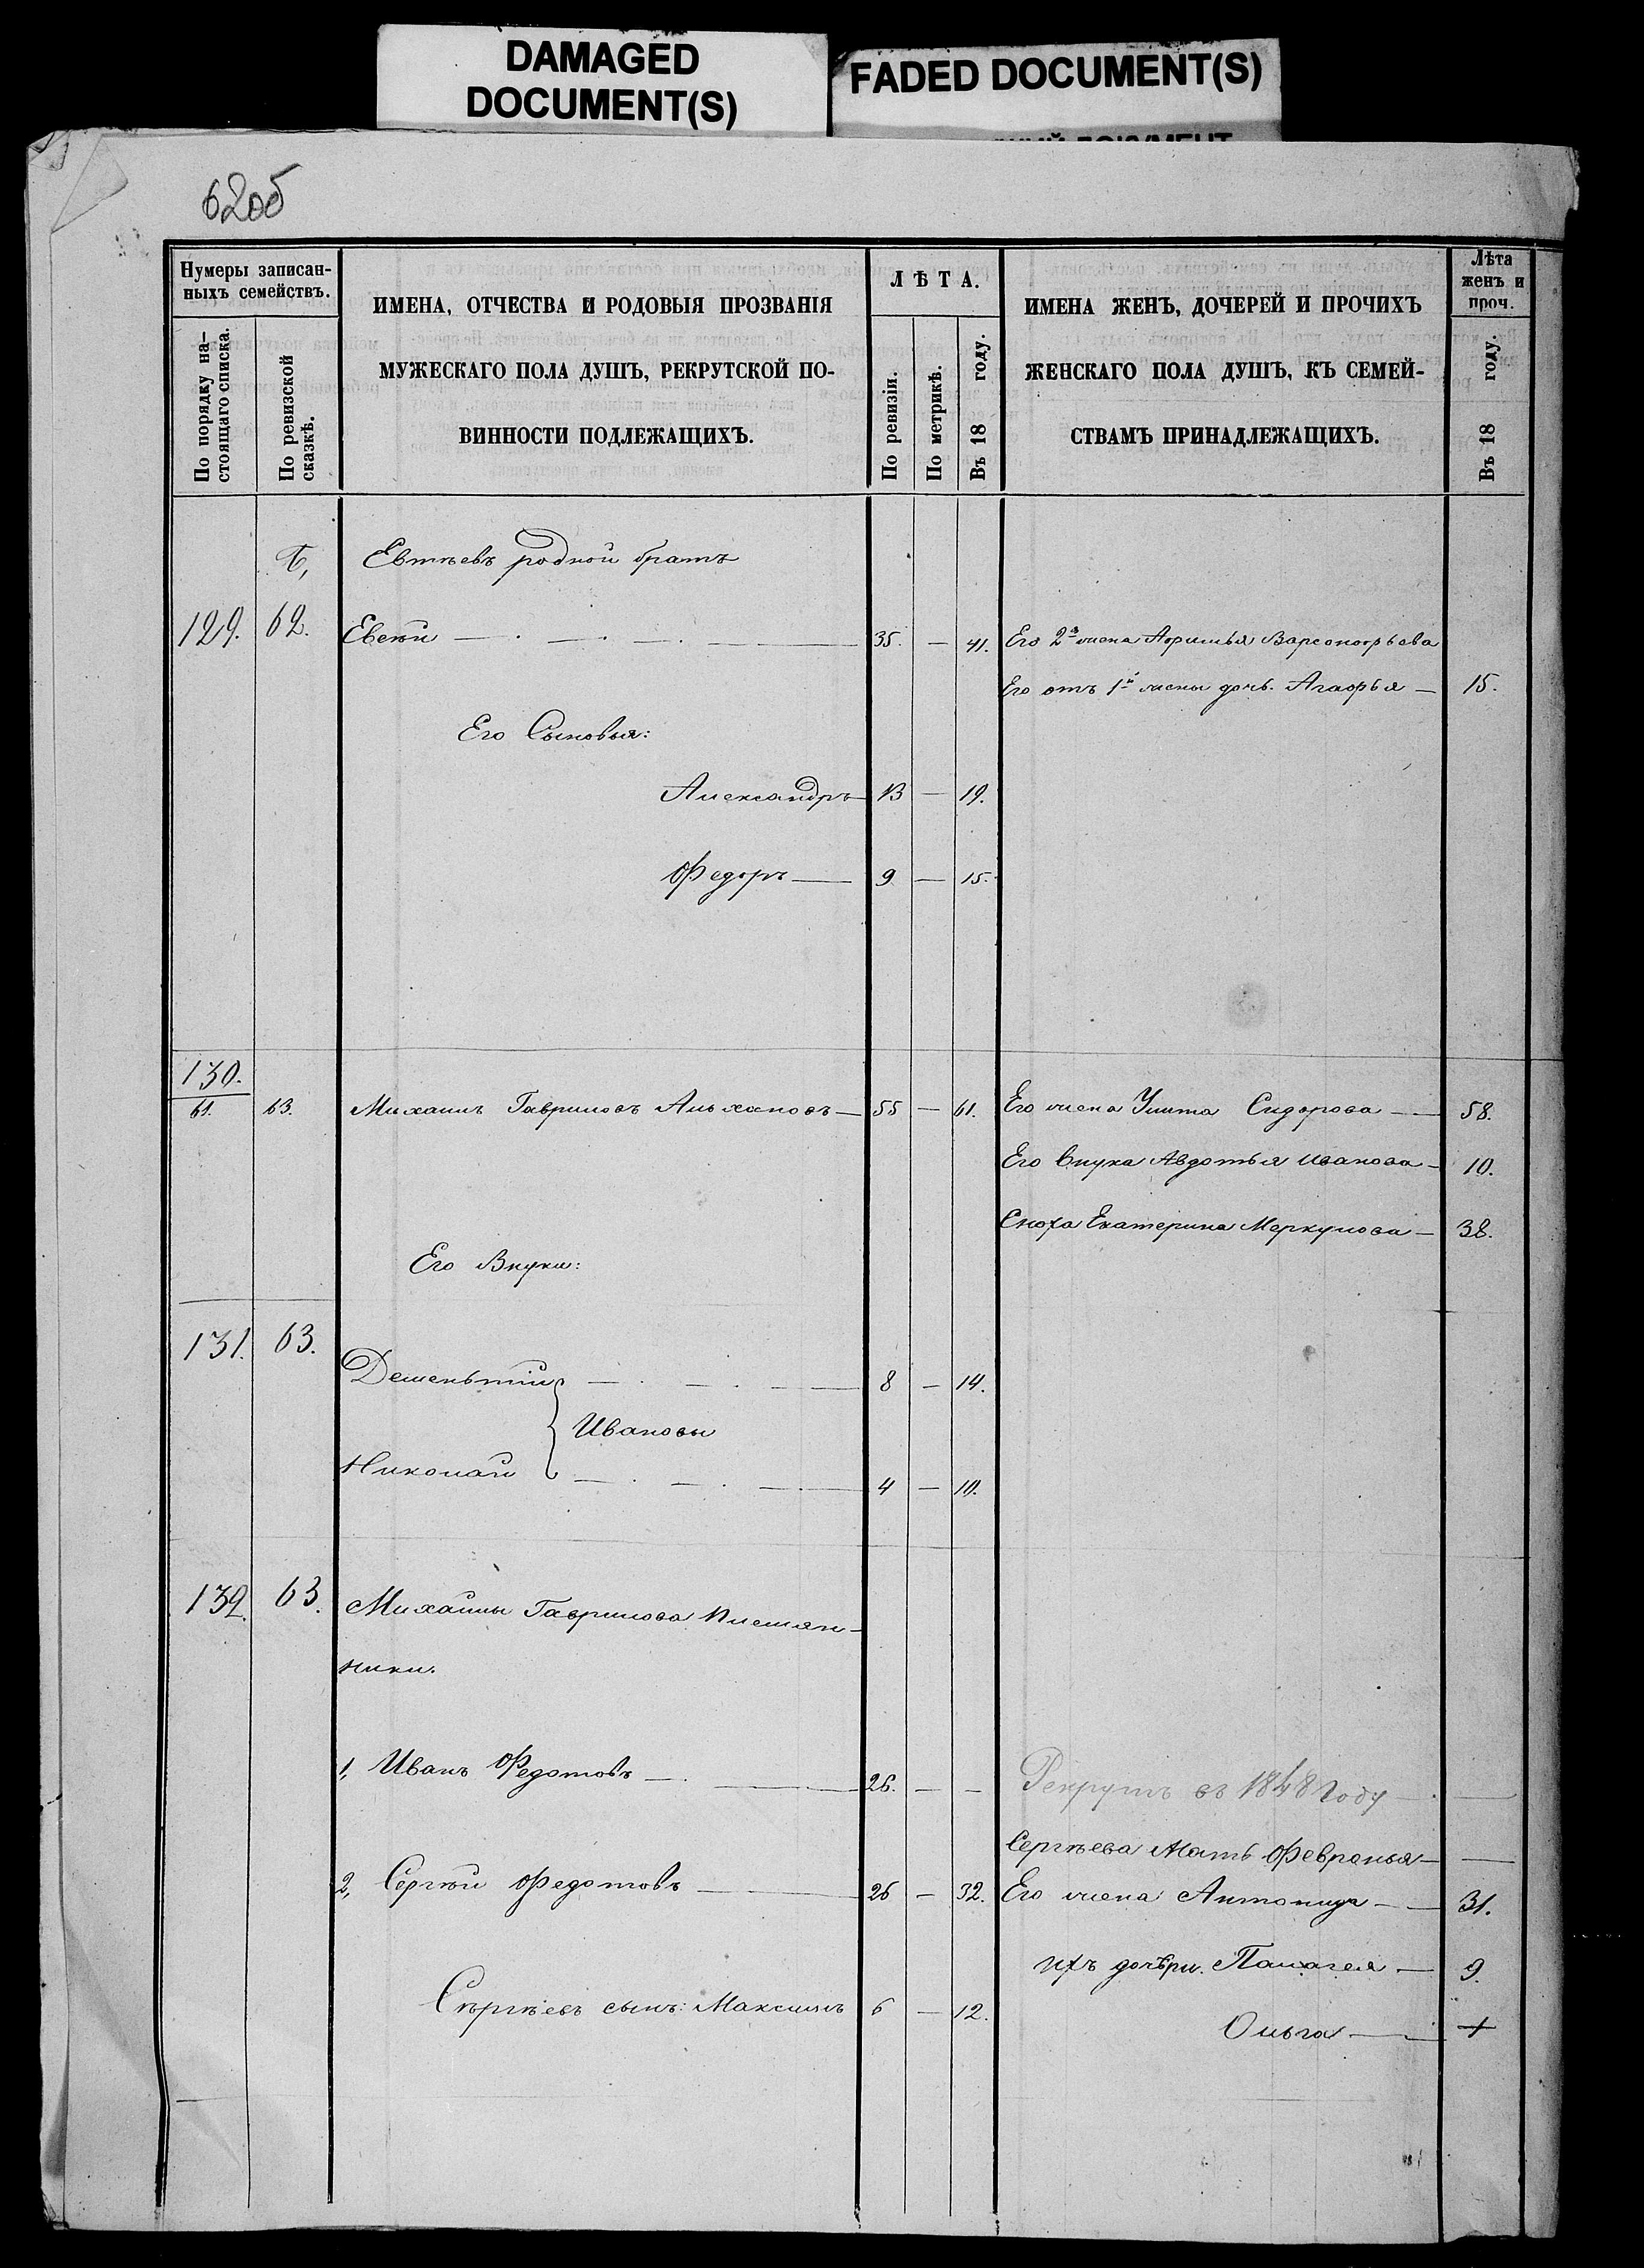 DAMAGED
DOCUMENT(S)
FADED DOCUMENT(S)
62об
Нумеры записан-
ныхъ семействъ.
По порядку на-
стоящаго списка.
По ревизской
сказкѣ.
ИМЕНА, ОТЧЕСТВА И РОДОВЫЯ ПРОЗВАНІЯ
МУЖЕСКАГО ПОЛА ДУШЪ, РЕКРУТСКОЙ ПО-
ВИННОСТИ ПОДЛЕЖАЩИХЪ.
ЛѢТА.
По ревизіи.
По метрикѣ.
Въ 18 году.
ИМЕНА ЖЕНЪ, ДОЧЕРЕЙ И ПРОЧИХЪ
ЖЕНСКАГО ПОЛА ДУШЪ, КЪ СЕМЕЙ-
СТВАМЪ ПРИНАДЛЕЖАЩИХЪ.
Лѣта
женъ и
проч.
Въ 18 году.
родной братъ
129. 62. Евсѣй — 35. — 41. Его 2я жена Варсонофьева
Его отъ 1й жены дочь Агафья — 15.
Его Сыновья:
Александръ 13 — 19.
Федоръ — 9 — 15.
130.
61. 63. Михаилъ Гавриловъ — 55 — 61. Его жена Улита Сидорова — 58.
Его внука Авдотья Иванова — 10.
Сноха Екатерина Меркулова — 38.
Его Внуки:
131. 63.
Дементій — 8 — 14.
Ивановы
Николай — 4 — 10.
132. 63. Михайлы Гаврилова Племян-
ники.
1, Иванъ Федотовъ — 26. — — Рекрутъ въ 1848 году —
Сергѣева Мать Февронья —
2, Сергѣй Федотовъ — 26 — 32. Его жена Антонида — 31.
ихъ дочери. Палагея — 9.
Сергѣевъ сынъ: Максимъ 6 — 12.
Ольга — +